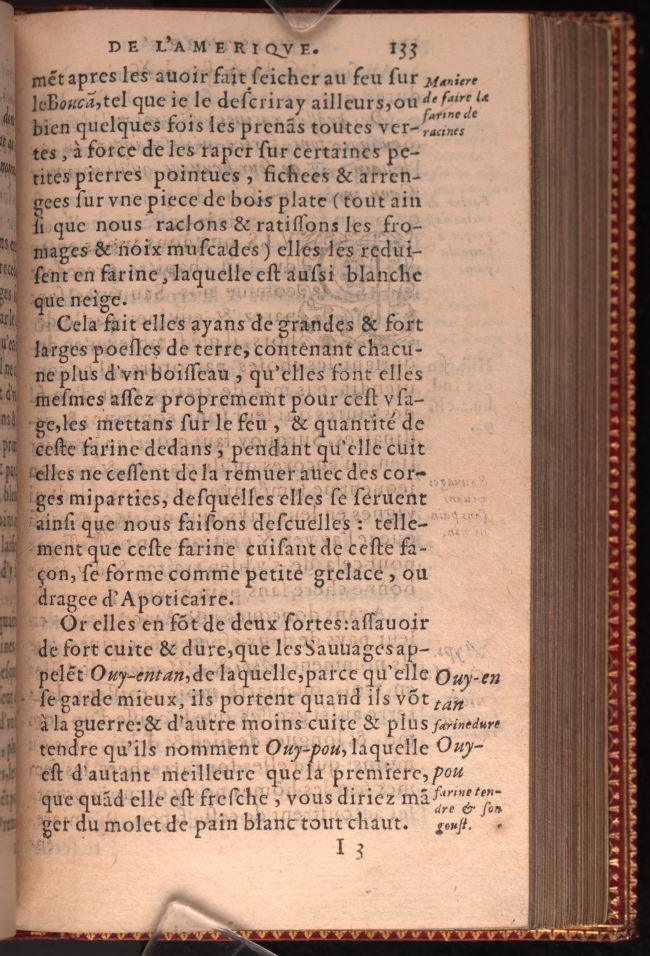 DE L'AMERIQVE. 133
mẽt apres les auoir fait ſeicher au feu ſur
le Boucã, tel que ie le deſcriray ailleurs, ou
bien quelques fois les prenãs toutes ver-
tes, à force de les raper ſur certaines pe-
tites pierres pointues, fichees & arren-
gees ſur vne piece de bois plate (tout ain
ſi que nous raclons & ratiſſons les fro-
mages & noix muſcades) elles les redui-
ſent en farine, laquelle eſt auſsi blanche
que neige.
Maniere
de faire la
farine de
racines
Cela fait elles ayans de grandes & fort
larges poeſles de terre, contenant chacu-
ne plus d'vn boiſſeau, qu'elles font elles
meſmes aſſez proprement pour ceſt vſa-
ge, les mettans ſur le feu, & quantité de
ceſte farine dedans, pendant qu'elle cuit
elles ne ceſſent de la remuer auec des cor-
ges miparties, deſquelles elles ſe ſeruent
ainſi que nous faiſons deſcuelles: telle-
ment que ceſte farine cuiſant de ceſte fa-
çon, ſe forme comme petite grelace, ou
dragee d'Apoticaire.
Or elles en fõt de deux ſortes: aſſauoir
de fort cuite & dure, que les Sauuages ap-
pelẽt Ouy-entan, de laquelle, parce qu'elle
ſe garde mieux, ils portent quand ils võt
à la guerre: & d'autre moins cuite & plus
tendre qu'ils nomment Ouy-pou, laquelle
eſt d'autant meilleure que la premiere,
que quãd elle eſt freſche, vous diriez mã
ger du molet de pain blanc tout chaut.
Ouy-en
tan
farine dure
Ouy-
pou
farine ten-
dre & ſon
gouſt.
I 3